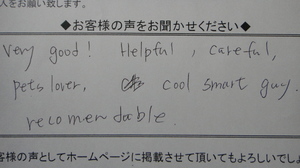 人をお願い致します。
◆お客様の声をお聞かせください◆
Very good! Helpful, careful,
pets lover, cool smart guy.
recomendable.
客様の声としてホームページに掲載させて頂いてもよろしいでし